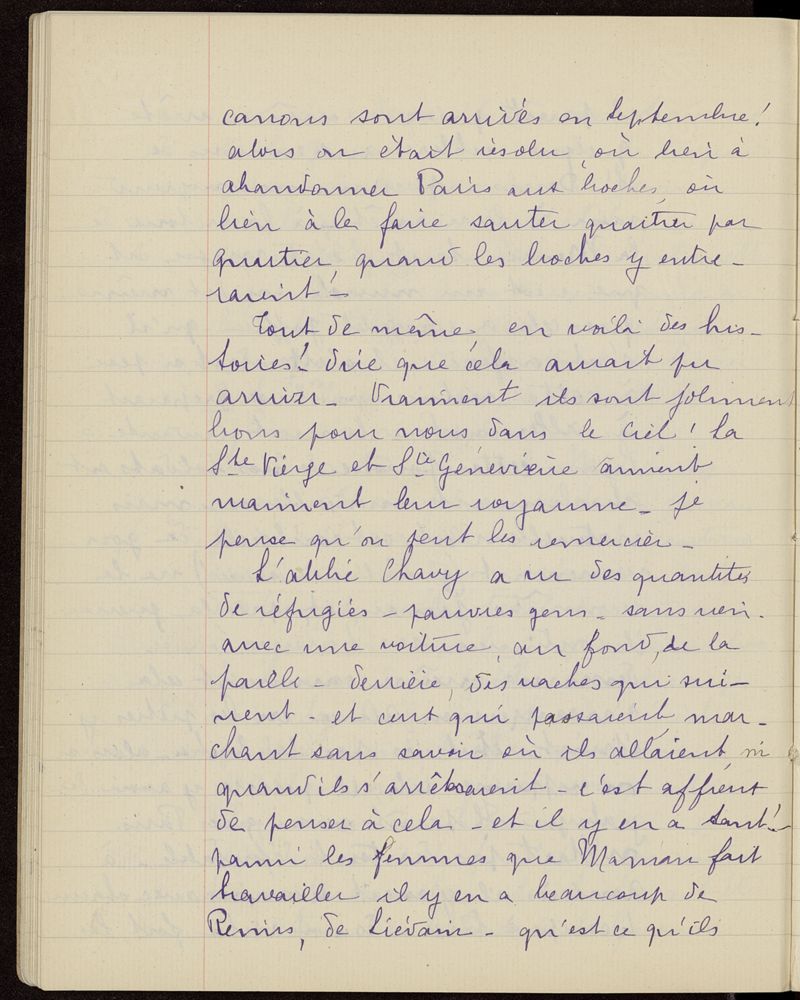 canons sont arrivés en Septembre!
alors on était résolu, ou bien à
abandonner Paris aux boches, ou
bien à le faire sauter quartier par
quartier, quand les boches y entre-
raient! -
Tout de même, en voilà des his-
toires! dire que cela aurait pu
arriver - Vraiment ils sont joliment
bons pour nous dans le Ciel! la
Ste Vierge et Ste Geneviève aiment
vraiment leur royaume - je
pense qu'on peut les remercier -
L'abbé Chavy a vu des quantités
de réfugiés - pauvres gens - sans rien -
avec une voiture, au fond, de la
paille - derrière, des vaches qui sui-
vent - et ceux qui passaient, mar-
chant sans savoir où ils allaient, ni
quand ils s'arrêteraient - c'est affreux
de penser à cela - et il y en a tant! -
parmi les femmes que Maman fait
travailler il y en a beaucoup de
Reims, de Liévain - qu'est ce qu'ils